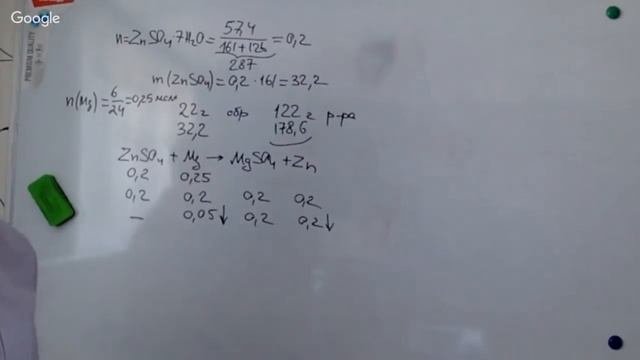 Google
PREMIUM QUALITY
n = ZnSO₄·7H₂O = 57,4 / (161 + 126) = 0,2
287
m (ZnSO₄) = 0,2 · 161 = 32,2
n(Mg) = 6/24 = 0,25 моль
22 г обр 122 г р-ра
32,2 178,6
ZnSO₄ + Mg → MgSO₄ + Zn
0,2 0,25
0,2 0,2 0,2 0,2
— 0,05↓ 0,2 0,2↓